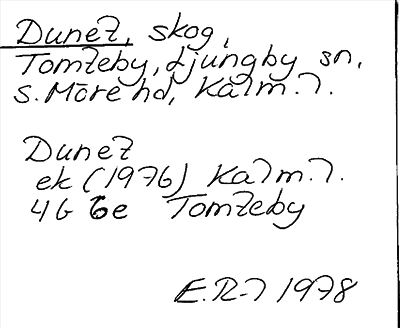 Dunel, skog,
Tomteby, Ljungby sn,
S. Möre hd, Kalm. l.
Dunel
ek (1976) Kalm. l.
4G 6e Tomteby
E.R-l 1978